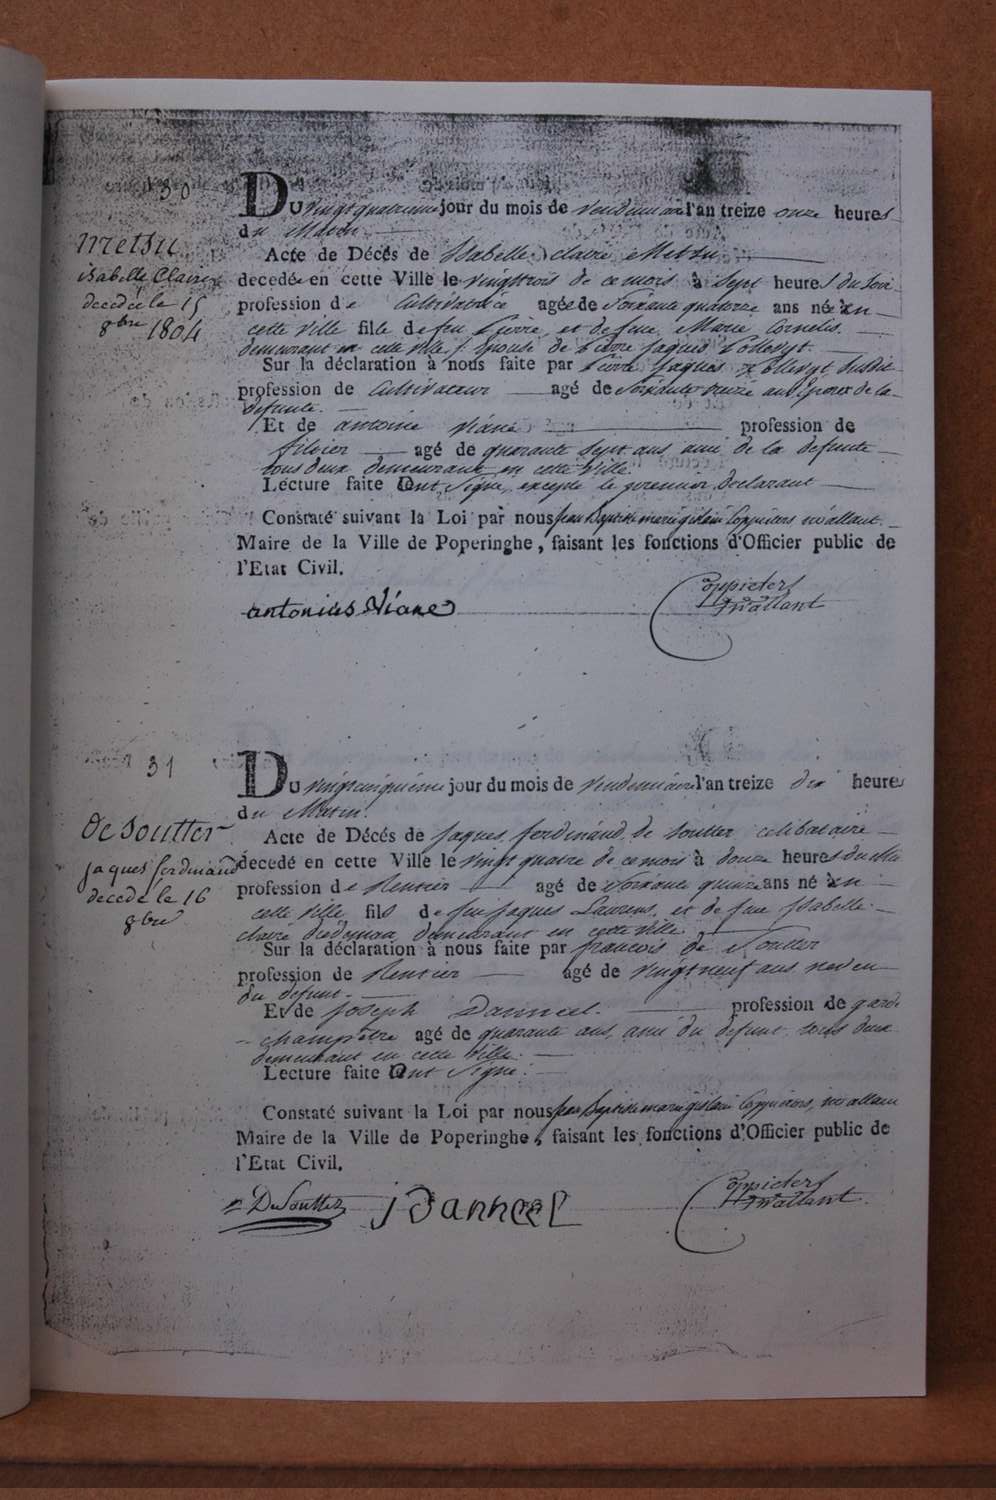 30
Metsu
isabelle Claire
decedée le 15
8bre 1804
Du vingtquatrieme jour du mois de vendemiaire l'an treize onze heures
du Matin.
Acte de Décés de Isabelle Claire Metsu
decedée en cette Ville le vingttrois de ce mois à sept heures du Soir
profession de Cultivatrice agée de soixante quatorze ans né en
cette ville fille de feu Pierre, et de feue Marie Cornelis.
demeurant en cette ville, Epouse de Pierre Jaques
Sur la déclaration à nous faite par Pierre Jaques susdit
profession de Cultivateur agé de soixante ans Epoux de la
defunte.
Et de antoine Viane profession de
filtier agé de quarante sept ans ami de la defunte
tous deux demeurant en cette Ville
Lecture faite ont Signé, excepté le premier declarant
Constaté suivant la Loi par nous Jean Baptiste marie gislain Coppieters wallant
Maire de la Ville de Poperinghe, faisant les fonctions d'Officier public de
l'Etat Civil.
antonius Viane
Coppieters
Wallant
31
de soutter
jaques ferdinand
decede le 16
8bre
Du vingtcinquieme jour du mois de vendemiaire l'an treize dix heures
du Matin.
Acte de Décés de Jaques ferdinand de Soutter celibataire
decedé en cette Ville le vingt quatre de ce mois à douze heures du
profession de Rentier agé de soixante quinze ans né en
cette ville fils de feu Jaques Laurens, et de feue Isabelle
claire demeurant en cette ville
Sur la déclaration à nous faite par francois de Soutter
profession de Rentier agé de vingt neuf ans neveu
du defunt.
Et de Joseph Danneel. profession de garde
champetre agé de quarante ans, ami du defunt tous deux
demeurant en cette Ville.
Lecture faite ont Signé.
Constaté suivant la Loi par nous Jean Baptiste marie gislain Coppieters, wallant
Maire de la Ville de Poperinghe, faisant les fonctions d'Officier public de
l'Etat Civil.
DeSoutter j Danneel
Coppieters
Wallant